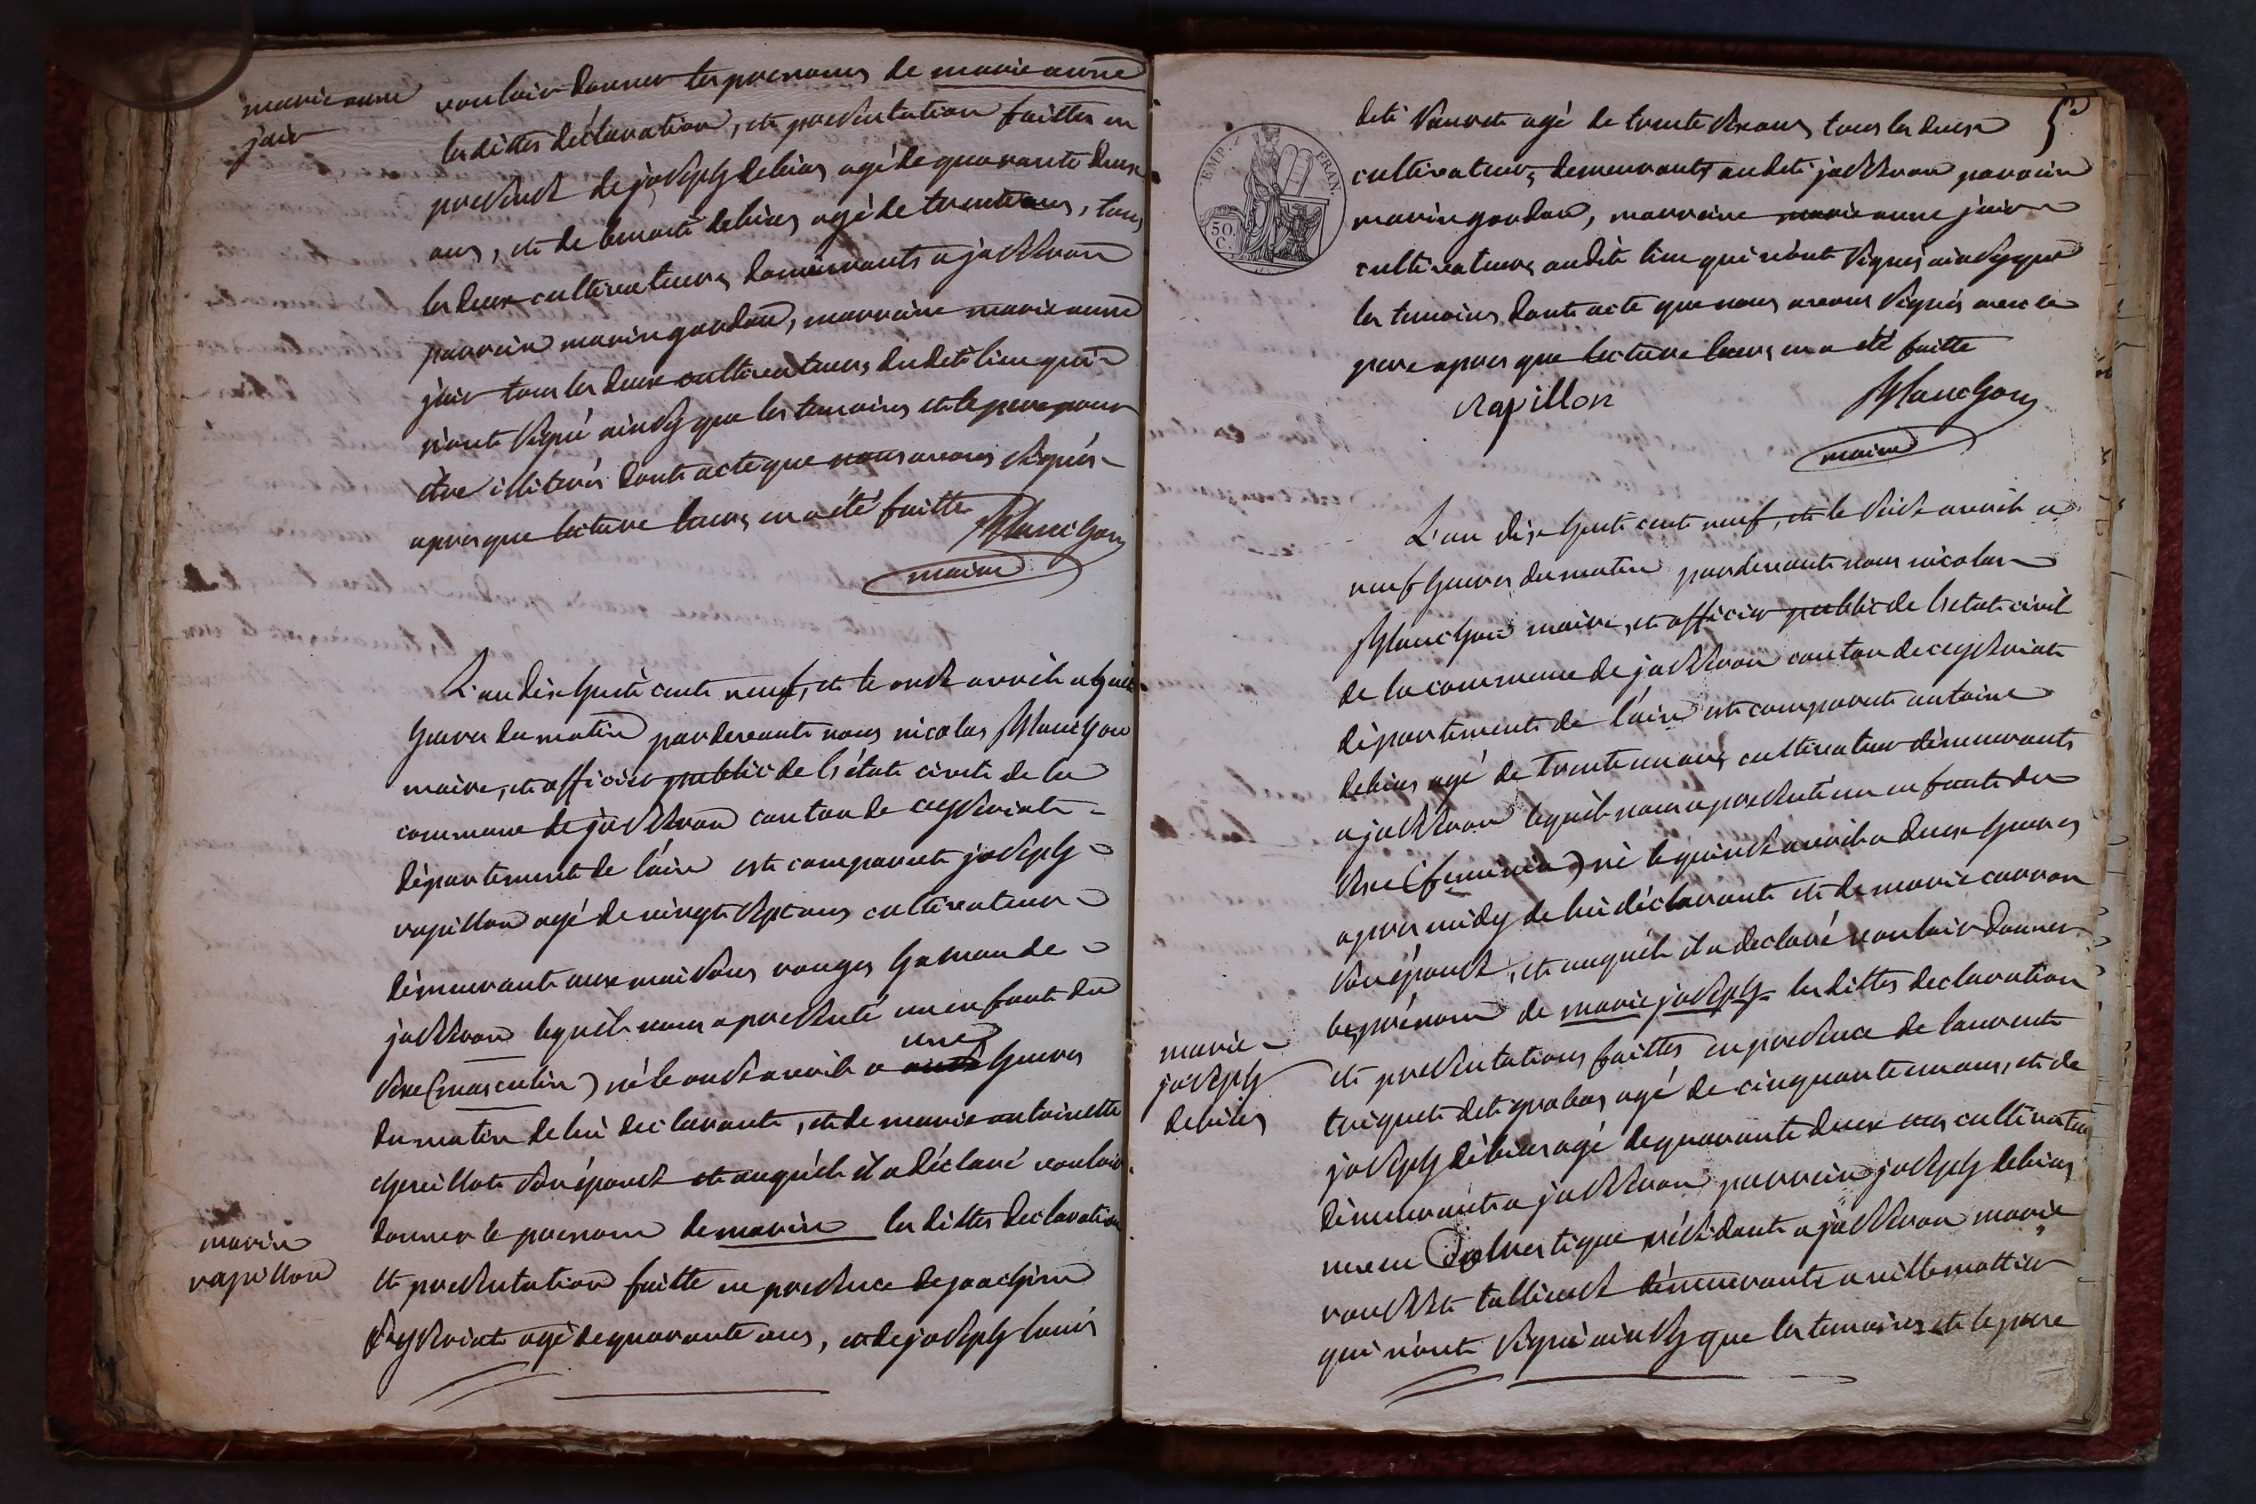 marie anne
jair
vouloir donner les prenoms de marie anne
les dittes déclaration, et presentation faittes en
presence de joseph debias agé de quarante deux
ans, et de benoit debias agé de trente ans, tous
les deux cultivateurs demeurants a jasseron
parrain marin goudon, marraine marie anne
jair tous les deux cultivateurs dudit lieu qui
n'ont signé ainsy que les temoins et le pere pour
être illiterés dont acte que nous avons signés
apres que lecture leurs en a été faitte
Blanchon
maire
L'an dix huit cent neuf, et le onze avril a huit
heures du matin pardevant nous nicolas Blanchon
maire, et officier public de l'état civil de la
commune de jasseron canton de ceyseriat
département de l'ain est comparut joseph
rapillon agé de vingt sept ans cultivateur
demeurant aux maisons rouges hameau de
jasseron lequel nous a presenté un enfant du
sexe (masculin) né le onze avril a onze heures
une
du matin de lui declarant, et de marie antoinette
chevillot son épouse et auquel il a déclaré vouloir
marin
rapillon
donner le prenom de marin les dittes declaration
et presentation faitte en presence de joachim
agé de quarante ans, et de joseph louis
5e
EMP. FRAN.
50 C.
dit agé de trente six ans tous les deux
cultivateurs demeurants audit jasseron parrain
marin goudon, marraine marie anne jair
cultivateurs audit lieu qui n'ont signés ainsy que
les temoins dont acte que nous avons signés avec le
pere apres que lecture leurs en a été faitte
rapillon
Blanchon
maire
L'an dix huit cent neuf, et le seize avril a
neuf heures du matin pardevant nous nicolas
Blanchon maire, et officier public de l'etat civil
de la commune de jasseron canton de ceyseriat
département de l'ain est comparut antoine
debias agé de trente un ans cultivateur demeurants
a jasseron lequel nous a presenté un enfant du
sexe (feminin) né le quinze avril a deux heures
apres midy de lui déclarant et de marie carron
son épouse, et auquel il a declaré vouloir donner
marie
joseph
debias
le prénom de marie joseph les dittes declaration
et presentations faittes en presence de laurent
triquet dit grabas agé de cinquante un ans, et de
joseph debias agé de quarante deux ans cultivateurs
demeurants a jasseron parrain joseph debias
résidant a jasseron marie
demeurants a villemottier
qui n'ont signé ainsy que les temoins et le pere